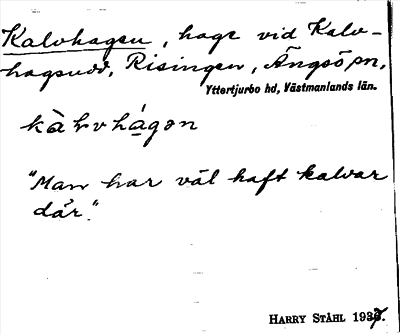 Kalvhagen, hage vid Kalv-
hagsudd, Risingen, Ängsö sn,
Yttertjurbo hd, Västmanlands län.
kàlvhágən
"Man har väl haft kalvar
där."
HARRY STÅHL 1937.